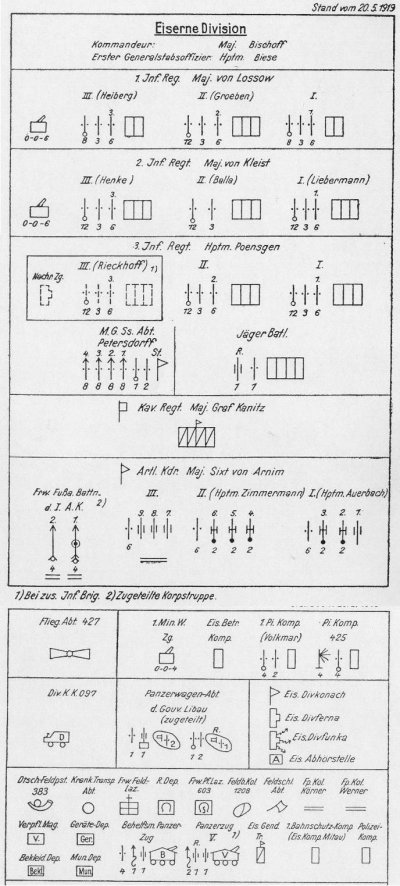 Stand vom 20.5.1919
Eiserne Division
Kommandeur: Maj. Bischoff
Erster Generalstabsoffizier: Hptm. Biese
1. Inf. Reg. Maj. von Lossow
III. (Heiberg) II. (Groeben) I.
3. 2. 1.
0-0-6 8 3 6 12 3 6 8 3 6
2. Inf. Regt. Maj. von Kleist
III. (Henke) II. (Balla) I. (Liebermann)
3. 1.
0-0-6 12 3 6 12 3 12 3 6
3. Inf. Regt. Hptm. Poensgen
III. (Rieckhoff) 1) II. I.
Nachr. Zg. 3. 2. 1.
12 3 6 12 3 6 12 3 6
M.G. Ss. Abt. Jäger Batl.
Petersdorff
4. 3. 2. 1. St. R.
8 8 8 8 1 2 1 1
Kav. Regt. Maj. Graf Kanitz
Artl. Kdr. Maj. Sixt von Arnim
Frw. Fußa. Battn. III. II. (Hptm. Zimmermann) I. (Hptm. Auerbach)
d. I. A.K. 2)
2. 1. 9. 8. 7. 6. 5. 4. 3. 2. 1.
6 6 2 2 2 6 2 2
4 4
1) Bei zus. Inf. Brig. 2) Zugeteilte Korpstruppe.
Flieg. Abt. 427 1. Min. W. Eis. Betr. 1. Pi. Komp. Pi. Komp.
Zg. Komp. (Volkmar) 425
0-0-4 4 2 4 4
Div. K.K. 097 Panzerwagen-Abt Eis. Divkonach
d. Gouv. Libau Eis. Divferna
(zugeteilt) R. Eis. Divfunka
D 2 1 1 1 1 2
A Eis. Abhorstelle
Dtsch-Feldpst. Krank Transp. Frw. Feld- R. Dep. Frw. Pf. Laz. Feldb. Kol. Feldschl. Fp. Kol. Fp. Kol.
383 Abt. Laz. 603 1208 Abt. Körner Werner
Verpfl. Mag. Geräte-Dep. Behelfsm. Panzer- Panzerzug 1) Eis. Gend. 1. Bahnschutz-Komp. Polizei-
V. Ger. Zug V. Tr. (Eis. Komp. Mitau) Komp.
Bekleid. Dep. Mun. Dep. B R. V
Bekl. Mun. 4 1 1 2 1 1